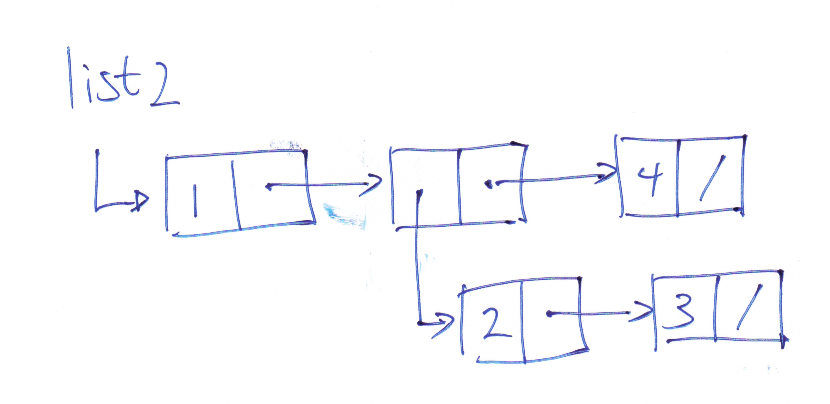 list2
1 4 /
2 3 /